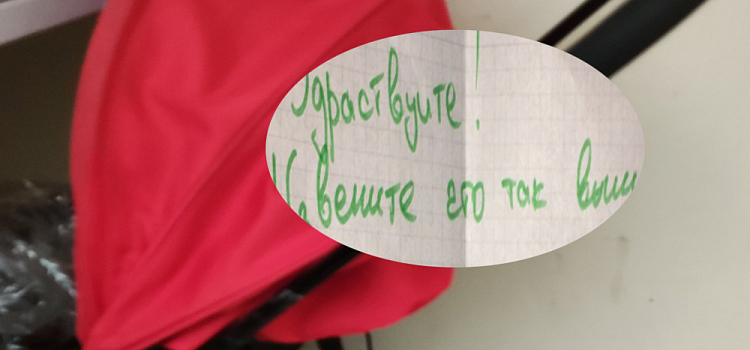 Здраствуите!
Извените что так